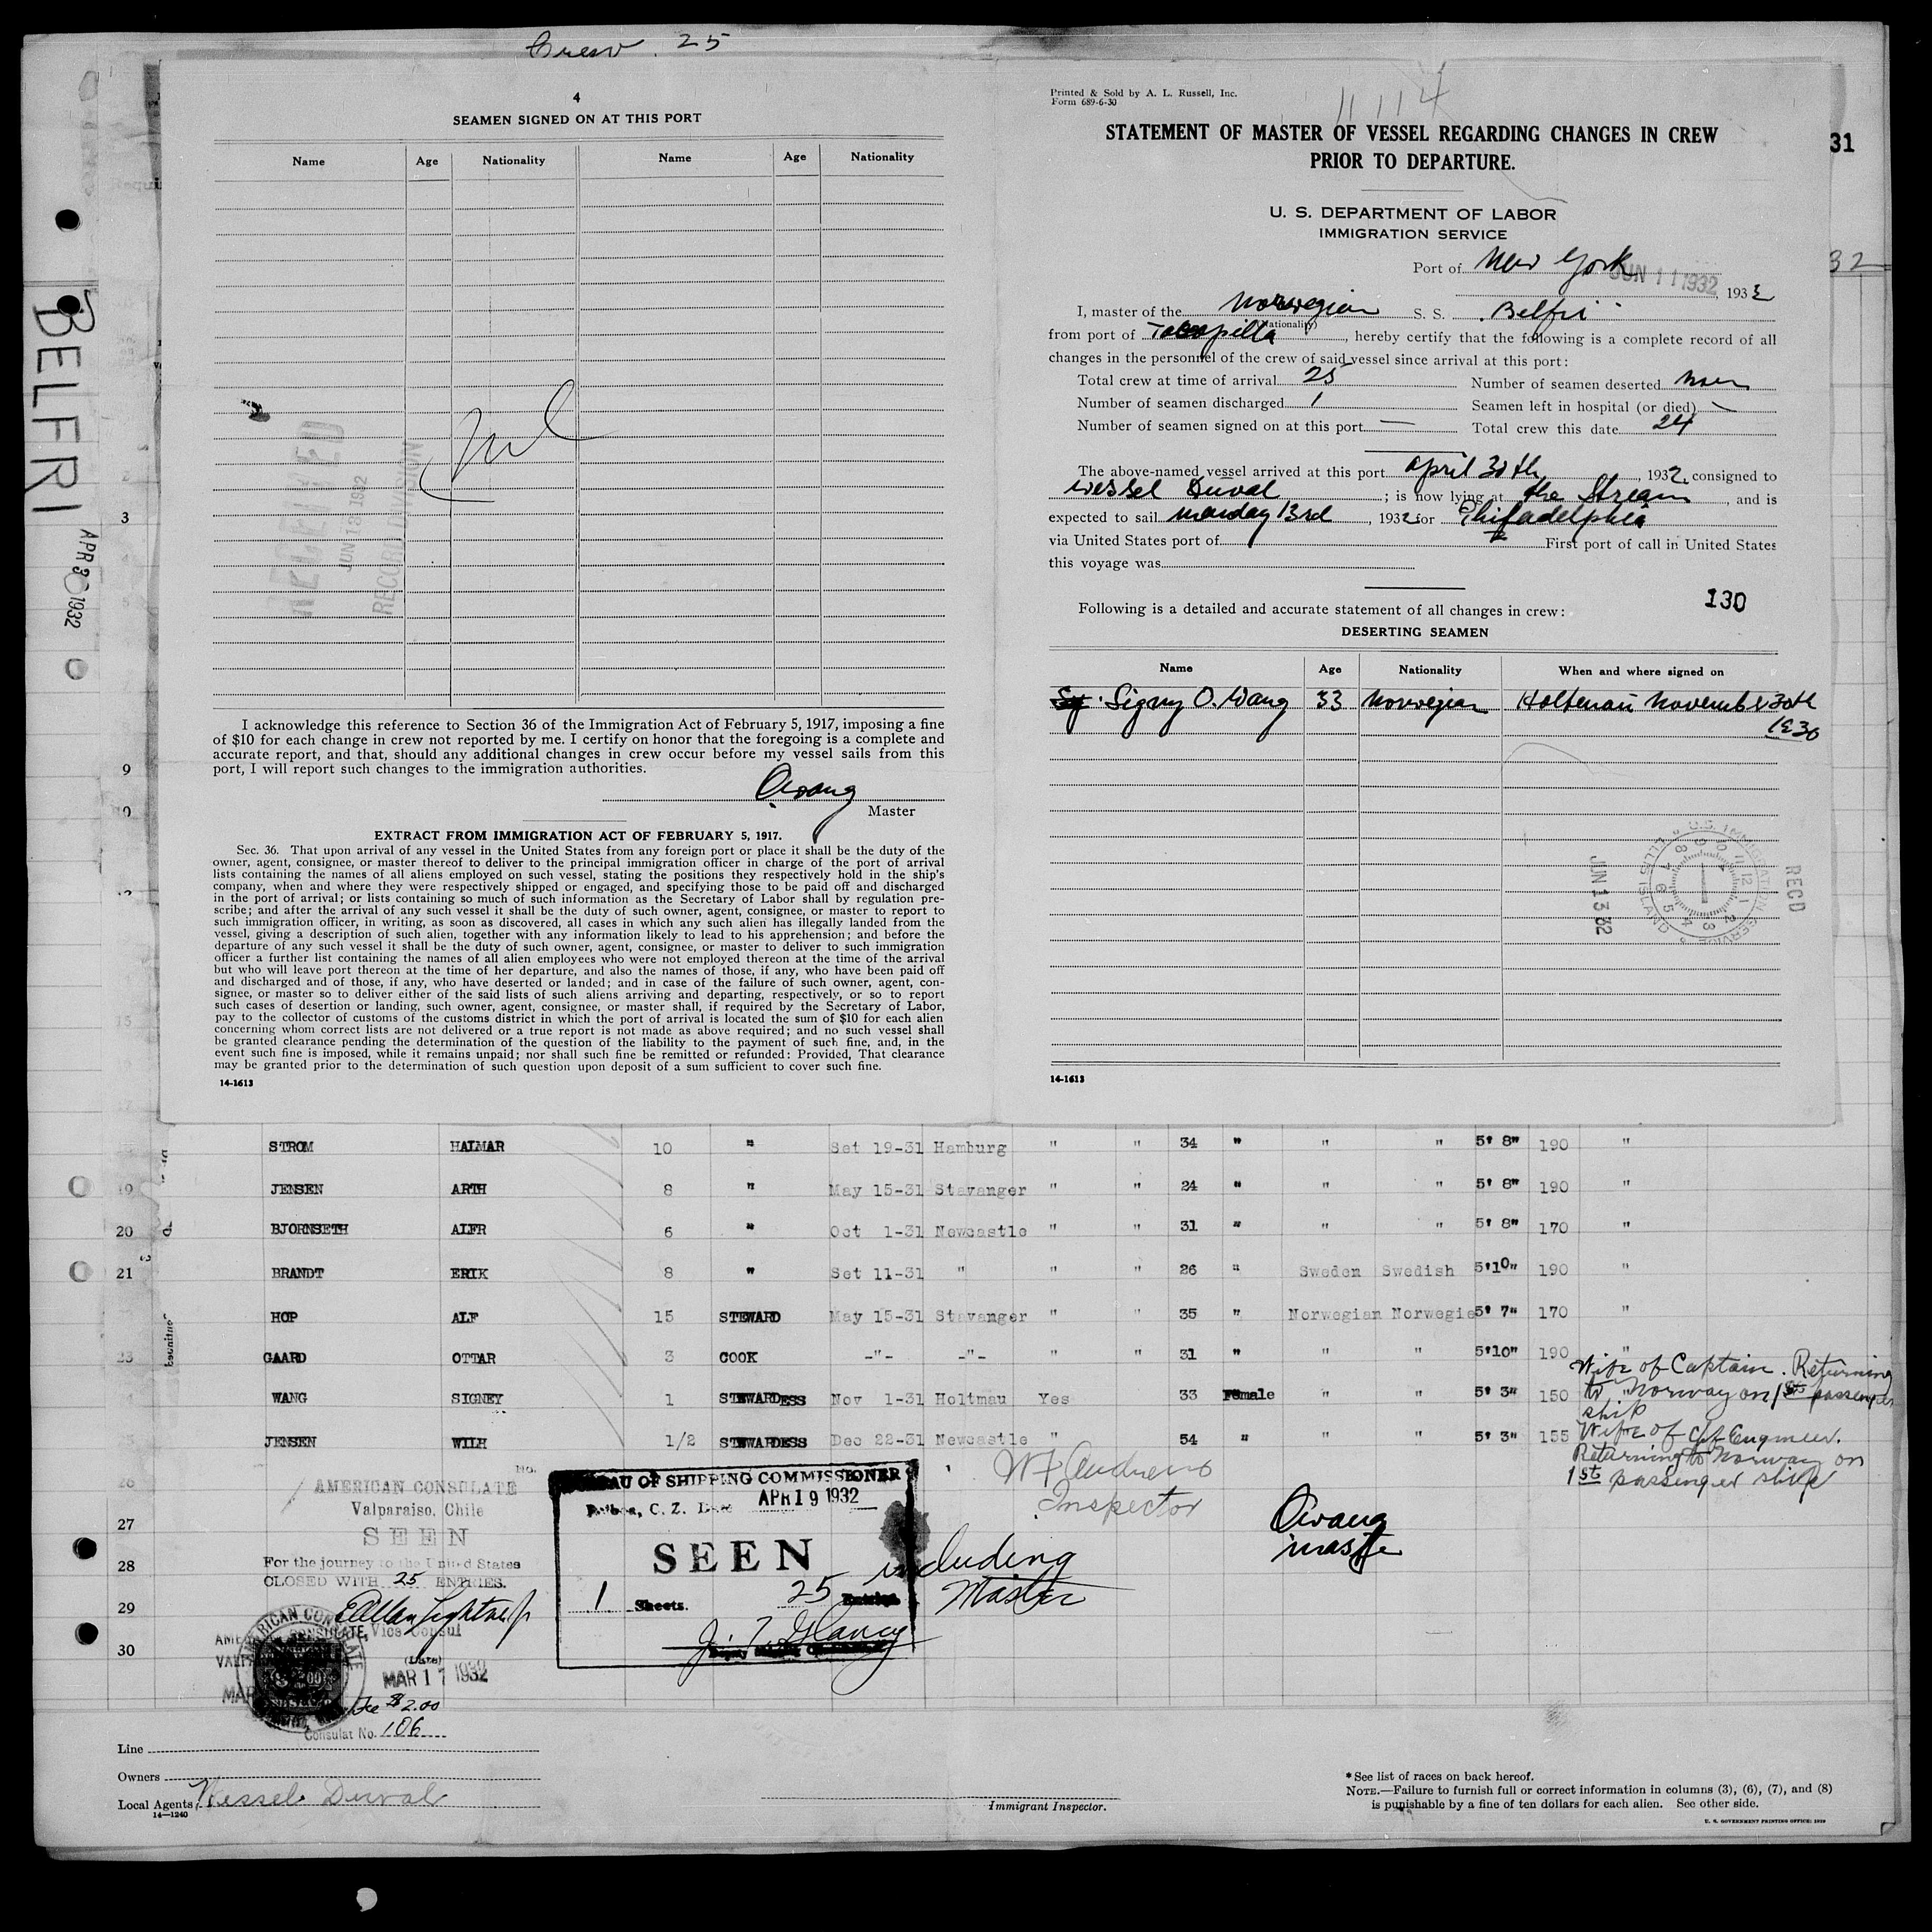 Crew. 25
4
SEAMEN SIGNED ON AT THIS PORT
Name Age Nationality Name Age Nationality
Nil
RECEIVED
JUN 13 1932
RECORD DIVISION
I acknowledge this reference to Section 36 of the Immigration Act of February 5, 1917, imposing a fine
of $10 for each change in crew not reported by me. I certify on honor that the foregoing is a complete and
accurate report, and that, should any additional changes in crew occur before my vessel sails from this
port, I will report such changes to the immigration authorities.
OWang
Master
EXTRACT FROM IMMIGRATION ACT OF FEBRUARY 5, 1917.
Sec. 36. That upon arrival of any vessel in the United States from any foreign port or place it shall be the duty of the
owner, agent, consignee, or master thereof to deliver to the principal immigration officer in charge of the port of arrival
lists containing the names of all aliens employed on such vessel, stating the positions they respectively hold in the ship's
company, when and where they were respectively shipped or engaged, and specifying those to be paid off and discharged
in the port of arrival; or lists containing so much of such information as the Secretary of Labor shall by regulation pre-
scribe; and after the arrival of any such vessel it shall be the duty of such owner, agent, consignee, or master to report to
such immigration officer, in writing, as soon as discovered, all cases in which any such alien has illegally landed from the
vessel, giving a description of such alien, together with any information likely to lead to his apprehension; and before the
departure of any such vessel it shall be the duty of such owner, agent, consignee, or master to deliver to such immigration
officer a further list containing the names of all alien employees who were not employed thereon at the time of the arrival
but who will leave port thereon at the time of her departure, and also the names of those, if any, who have been paid off
and discharged and of those, if any, who have deserted or landed; and in case of the failure of such owner, agent, con-
signee, or master so to deliver either of the said lists of such aliens arriving and departing, respectively, or so to report
such cases of desertion or landing, such owner, agent, consignee, or master shall, if required by the Secretary of Labor,
pay to the collector of customs of the customs district in which the port of arrival is located the sum of $10 for each alien
concerning whom correct lists are not delivered or a true report is not made as above required; and no such vessel shall
be granted clearance pending the determination of the question of the liability to the payment of such fine, and, in the
event such fine is imposed, while it remains unpaid; nor shall such fine be remitted or refunded: Provided, That clearance
may be granted prior to the determination of such question upon deposit of a sum sufficient to cover such fine.
14-1613
Printed & Sold by A. L. Russell, Inc.
Form 689-6-30
11114
STATEMENT OF MASTER OF VESSEL REGARDING CHANGES IN CREW
PRIOR TO DEPARTURE.
U. S. DEPARTMENT OF LABOR
IMMIGRATION SERVICE
Port of New York
JUN 11 1932, 1932
I, master of the Norwegian S. S. Belfri
(Nationality)
from port of Tocopilla, hereby certify that the following is a complete record of all
changes in the personnel of the crew of said vessel since arrival at this port:
Total crew at time of arrival 25 Number of seamen deserted
Number of seamen discharged 1 Seamen left in hospital (or died) —
Number of seamen signed on at this port — Total crew this date 24
The above-named vessel arrived at this port April 30th, 1932, consigned to
Wessel Duval; is now lying at the Stream, and is
expected to sail Monday 13rd, 1932 for Philadelphia
via United States port of First port of call in United States
this voyage was
130
Following is a detailed and accurate statement of all changes in crew:
DESERTING SEAMEN
Name Age Nationality When and where signed on
Sy. Signy O. Wang 33 Norwegian Holtenau November 30th
1930
U.S. IMMIGRATION SERVICE ELLIS ISLAND
JUN 13 32
RECD
14-1613
31
32
BELFRI
APR 30 1932
3
9
STROM HALMAR 10 " Set 19-31 Hamburg " " 34 " " " 5' 8" 190 "
19 JENSEN ARTH 8 " May 15-31 Stavanger " " 24 " " " 5' 8" 190 "
20 BJORNSETH ALFR 6 " Oct 1-31 Newcastle " " 31 " " " 5' 8" 170 "
21 BRANDT ERIK 8 " Set 11-31 " " " 26 " Sweden Swedish 5'10" 190 "
HOP ALF 15 STEWARD May 15-31 Stavanger " " 35 " Norwegian Norwegie 5' 7" 170 "
23 GAARD OTTAR 3 COOK -"- -"- " " 31 " " " 5'10" 190 "
WANG SIGNEY 1 STEWARDESS Nov 1-31 Holtmau Yes 33 Female " " 5' 3" 150 "
Wife of Captain. Returning
to Norway on 1st passenger
ship
JENSEN WILH 1/2 STEWARDESS Dec 22-31 Newcastle " 54 " " " 5' 3" 155
Wife of Chf Engineer.
Returning to Norway on
1st passenger ship
26
27
28
29
30
No.
AMERICAN CONSULATE
Valparaiso, Chile
SEEN
For the journey to the United States
CLOSED WITH 25 ENTRIES.
Vice Consul
AMERICAN CONSULATE
(Date)
MAR 17 1932
Fee $2.00
Consulat No. 106
BUREAU OF SHIPPING COMMISSIONER
Balboa, C. Z. Date APR 19 1932
SEEN
1 Sheets. 25 Entries
including
Master
J. T. Glancy
W F Andrews
Inspector
OWang
master
Line
Owners
Local Agents Wessel Duval
14—1240
Immigrant Inspector.
* See list of races on back hereof.
NOTE.—Failure to furnish full or correct information in columns (3), (6), (7), and (8)
is punishable by a fine of ten dollars for each alien. See other side.
U. S. GOVERNMENT PRINTING OFFICE: 1929